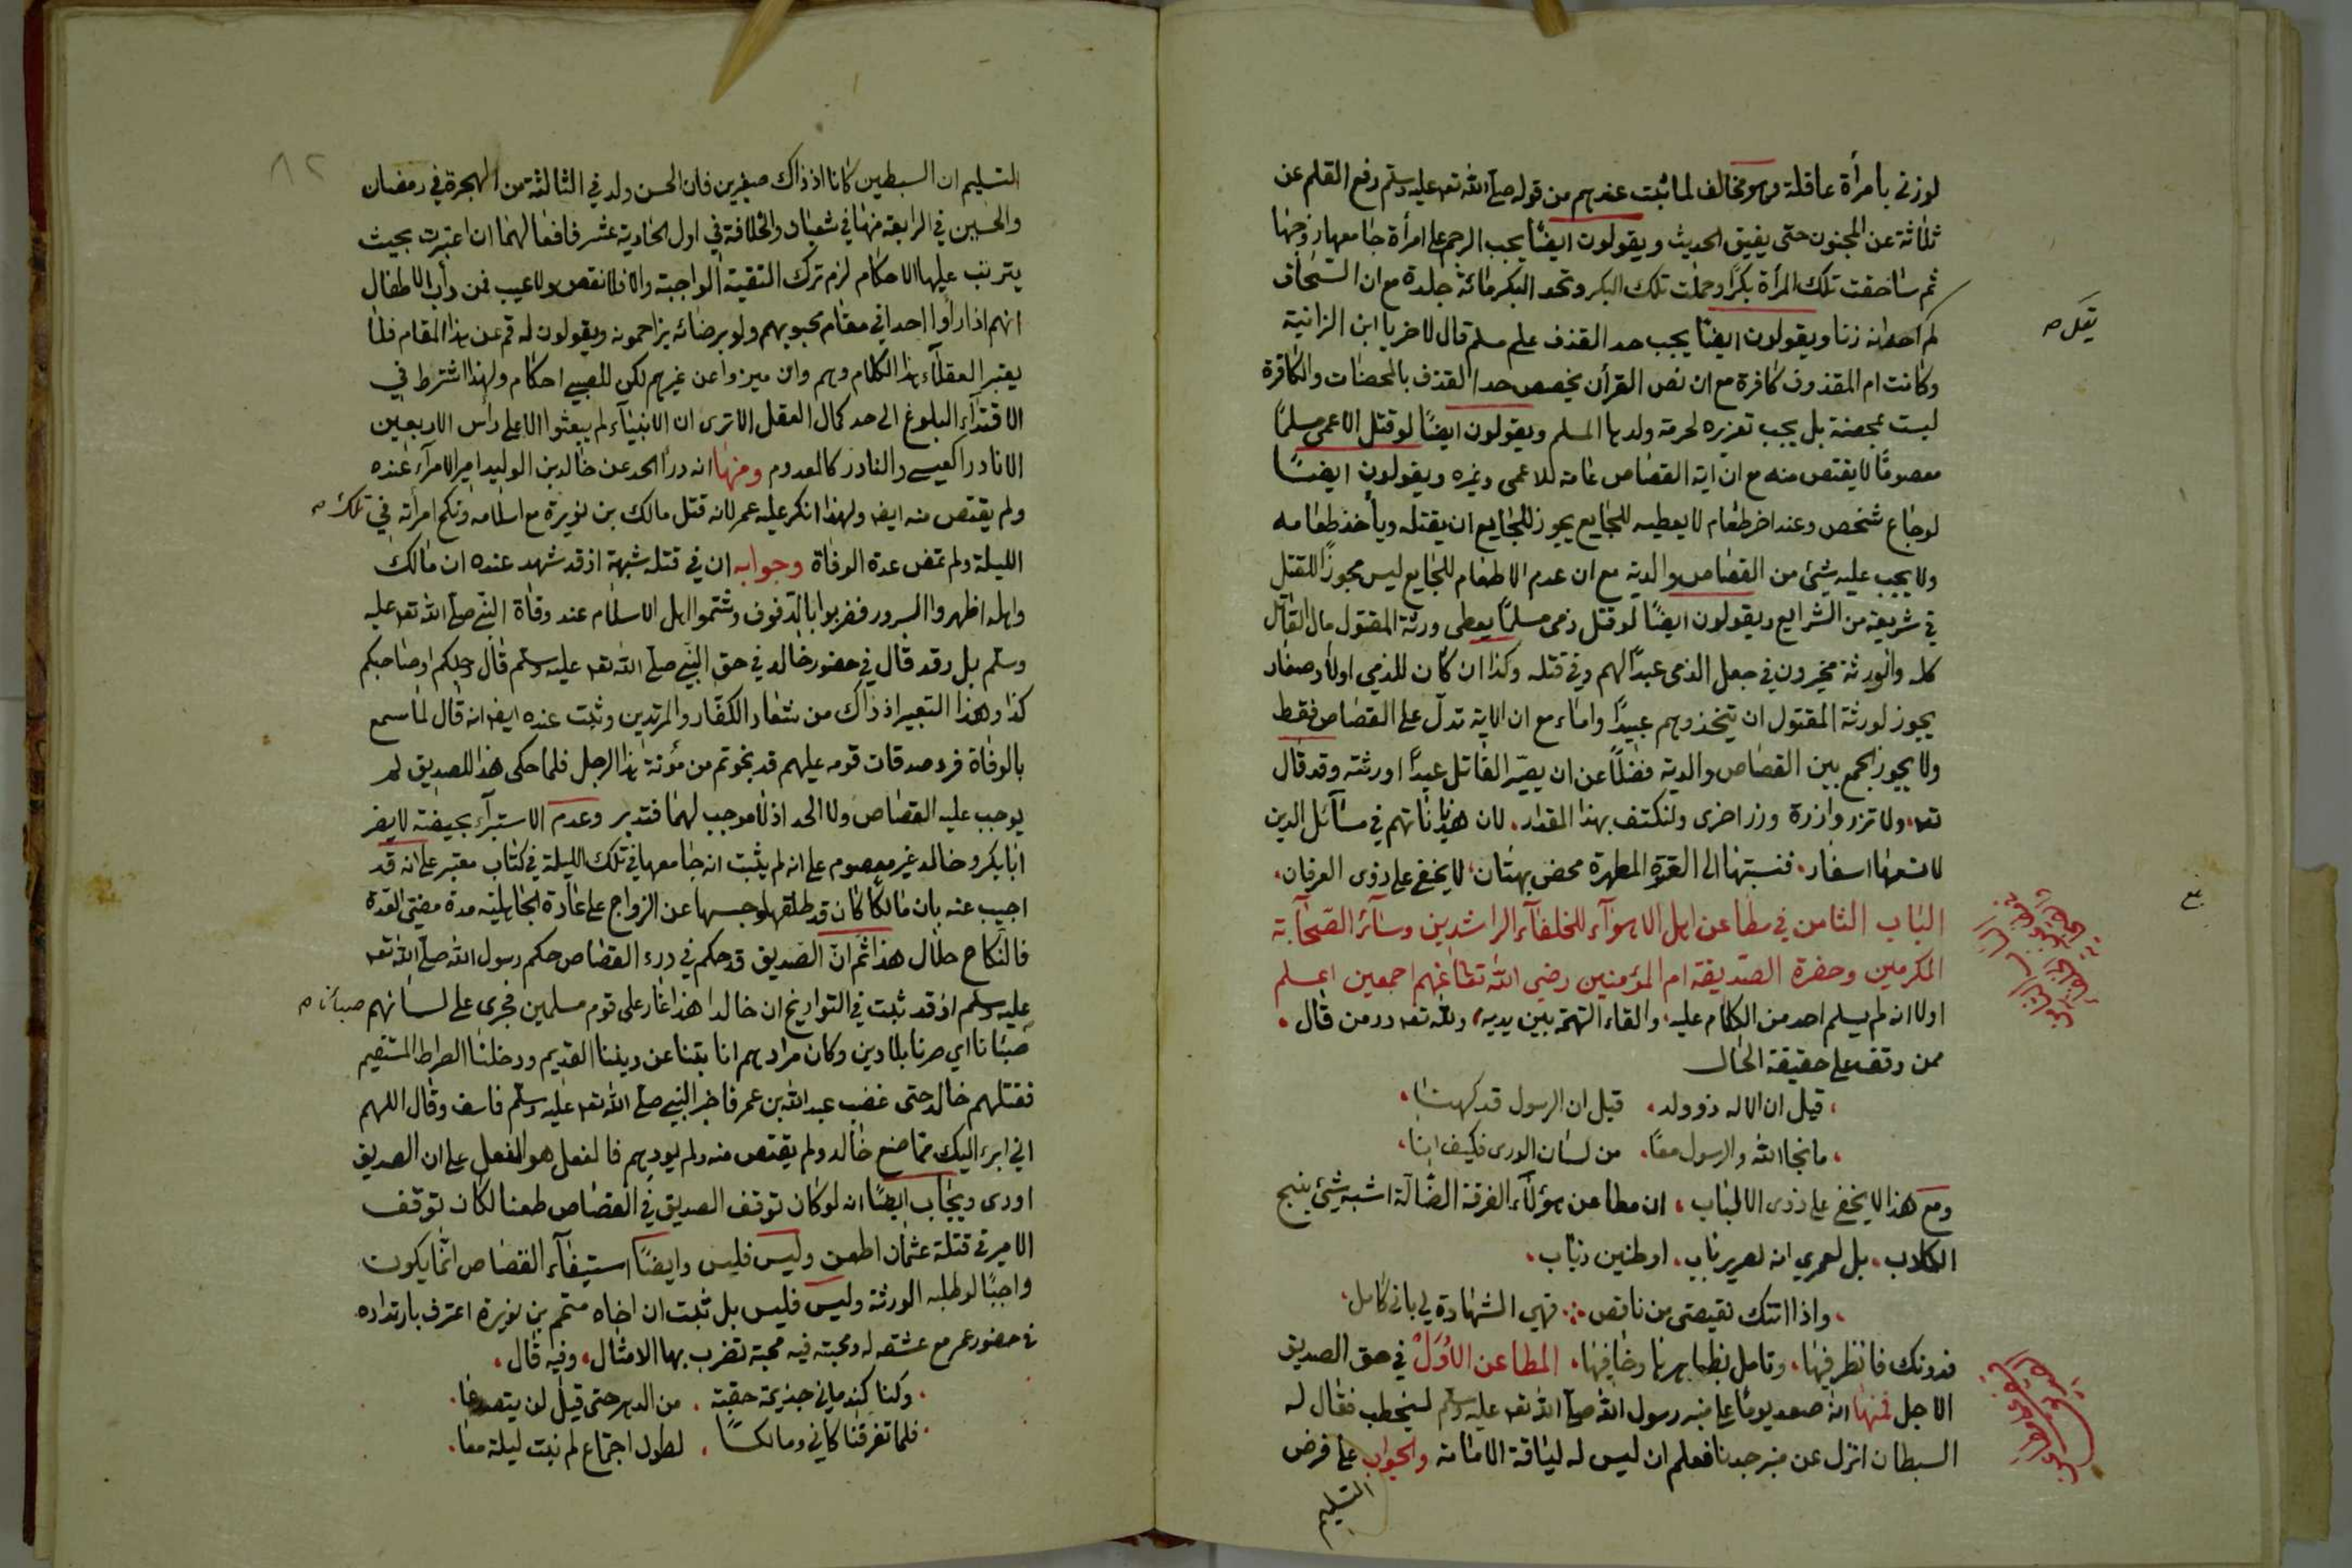 لو زنى بامرأة عاقلة وهو مخالف لما ثبت عندهم من قوله صلى الله تعـ عليه وسلم رفع القلم عن
ثلاثة عن المجنون حتى يفيق الحديث ويقولون ايضًا يجب الرجم على امرأة جامعها زوجها
ثم ساحقت تلك المرأة بكرًا وحملت تلك البكر وتحد البكر مائة جلدة مع ان السحاق
لم احد انه زنا ويقولون ايضًا يجب حد القذف على مسلم قال لاخر يا ابن الزانية
وكانت ام المقذوف كافرة مع ان نص القرأن يخصص حد القذف بالمحصنات والكافرة
ليست بمحصنة بل يجب تعزيره لحرمة ولدها المسلم ويقولون ايضًا لو قتل الاعمى مسلمًا
معصومًا لا يقتص منه مع ان اية القصاص عامة للاعمى وغيره ويقولون ايضـًا
لو جاع شخص وعند اخر طعام لا يعطيه للجايع يجوز للجايع ان يقتله ويأخذ طعامه
ولا يجب عليه شئ من القصاص والدية مع ان عدم الاطعام للجايع ليس مجوزًا للقتل
في شريعة من الشرايع ويقولون ايضًا لو قتل ذمى مسلمًا يعطى ورثة المقتول مال القاتل
كله والورثة مخيرون في جعل الذمى عبدًا لهم وفي قتله وكذا ان كان للذمي اولاد صغار
يجوز لورثة المقتول ان يتخذوهم عبيدًا واماء مع ان الاية تدل على القصاص فقط
ولا يجوز الجمع بين القصاص والدية فضلًا عن ان يصير القاتل عبدًا او رثته وقد قال
تعـ، ولا تزر وازرة وزر اخرى ولنكتف بهذا المقدار، لان هذياناتهم في مسائل الدين
لا تسعها اسفار، فنسبتها الى العترة المطهرة محض بهتان، لا يخفى على ذوى العرفان،
الباب الثامن في مطاعن اهل الاهوآء للخلفآء الراشدين وسآئر الصحآبة
المكرمين وحضرة الصديقة ام المؤمنين رضي الله تعالى عنهم اجمعين اعـلم
اولا انه لم يسلم احد من الكلام عليه، والقاء التهمة بين يديه، ولله تعـ در من قال،
ممن وقف على حقيقة الحال
، قيل ان الاله ذو ولد، قيل ان الرسول قد كهنـا،
، ما نجا الله والرسول معًا، من لسان الورى فكيف انـا،
ومع هذا لا يخفى على ذوى الالباب، ان مطاعن هؤلآء الفرقة الضالة اشبه شئ بنبح
الكلاب، بل لعمري انه لصرير باب، او طنين ذباب،
، واذا اتتك نقيصتى من ناقص ∴ فهي الشهادة لي باني كامل،
فدونك فانظر فيها، وتامل بظاهرها وخافيها، المطاعن الاُوَلُ في حق الصديق
الاجل فمنها انه صعد يومًا على منبر رسول الله صلى الله تعـ عليه وسلم ليخطب فقال له
السبطان انزل عن منبر جدنا فعلم ان ليس له لياقة الامامة والجواب على فرض
التسليم
٨٢
التسليم ان السبطين كانا اذ ذاك صغيرين فان الحسن ولد في الثالثة من الهجرة في رمضان
والحسين في الرابعة منها في شعبان والخلافة في اول الحادية عشر فافعالهما ان اعتبرت بحيث
يترتب عليها الاحكام لزم ترك التقية الواجبة والا فلا نقص ولا عيب فمن دأب الاطفال
انهم اذا رأوا احدا في مقام محبوبهم ولو برضائه يزاحمونه ويقولون له قم عن هذا المقام فلا
يعتبر العقلآء هذا الكلام وهم وان ميزوا عن غيرهم لكن للصبي احكام ولهذا اشترط في
الاقتدآء البلوغ الى حد كمال العقل الا ترى ان الانبيآء لم يبعثوا الا على رأس الاربعين
الا نادرًا كعيسى والنادر كالمعدوم ومنها انه درأ الحد عن خالد بن الوليد امير الامرآء عنده
ولم يقتص منه ايضـ ولهذا انكر عليه عمر لانه قتل مالك بن نويرة مع اسلامه ونكح امرأته في تلك
الليلة ولم تمض عدة الوفاة وجوابه ان في قتله شبهة اذ قد شهد عنده ان مالك
واهله اظهروا السرور فضربوا بالدفوف وشتموا اهل الاسلام عند وفاة النبي صلى الله تعـ عليه
وسلم بل وقد قال في حضور خالد في حق النبي صلى الله تعـ عليه وسلم قال رجلكم او صاحبكم
كذا وهذا التعبير اذ ذاك من شعار الكفار والمرتدين وثبت عنده ايضـ انه قال لما سمع
بالوفاة فرد صدقات قومه عليهم قد نجوتم من مؤنة هذا الرجل فلما حكى هذا للصديق لم
يوجب عليه القصاص ولا الحد اذ لا موجب لهما فتدبر وعدم الاستبرآء بحيضة لا يضر
ابا بكر وخالد غير معصوم على انه لم يثبت انه جامعها في تلك الليلة في كتاب معتبر على انه قد
اجيب عنه بان مالكًا كان قد طلقها وحبسها عن الزواج على عادة الجاهلية مدة مضى العدة
فالنكاح حلال هذا ثم ان الصديق قد حكم في درء القصاص حكم رسول الله صلى الله تعـ
عليه وسلم اذ قد ثبت في التواريخ ان خالدا هذا غار على قوم مسلمين فجرى على لسانهم صبأنا
صبأنا اي صرنا بلا دين وكان مرادهم انا تبنا عن ديننا القديم ودخلنا الصراط المستقيم
فقتلهم خالد حتى غضب عبد الله بن عمر فاخبر النبي صلى الله تعـ عليه وسلم فاسف وقال اللهم
اني ابرء اليك مما صنع خالد ولم يقتص منه ولم يودهم فالفعل هو الفعل على ان الصديق
اودى ويجاب ايضًا انه لو كان توقف الصديق في القصاص طعنا لكان توقف
الامير في قتلة عثمان اطعن وليس فليس وايضًا استيفآء القصاص انما يكون
واجبًا لو طلبه الورثة وليس فليس بل ثبت ان اخاه متمم بن نويرة اعترف بارتداده
في حضور عمر مع عشقه له ومحبته فيه محبة تضرب بها الامثال، وفيه قال،
، وكنا كندماني جذيمة حقبة، من الدهر حتى قيل لن يتصدعا،
، فلما تفرقنا كاني ومالكـًا، لطول اجتماع لم نبت ليلة معا،